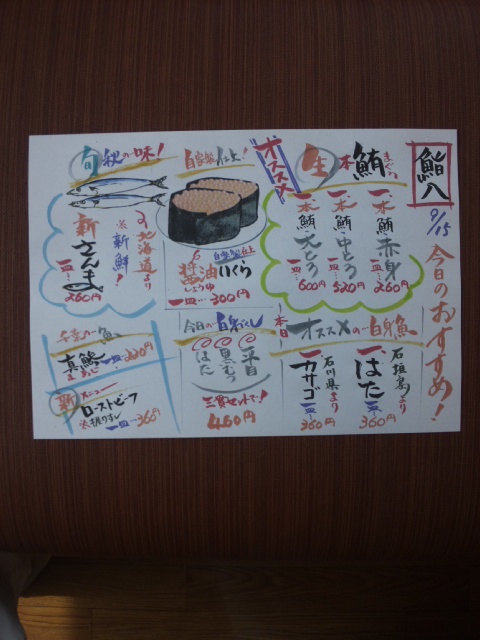 鮨八
9/15
今日のおすすめ!
オススメ
生本鮪まぐろ
一、本鮪赤身
一皿…260円
一、本鮪中とろ
一皿…520円
一、本鮪大とろ
一皿…600円
自家製仕上!
自家製仕上
醤油いくら
しょうゆ
一皿…300円
旬秋の味!
北海道より
※新鮮!
新さんま
一皿…260円
本日オススメの白身魚
石垣島より
一、はた
一皿…360円
石川県より
一、カサゴ
一皿…360円
今日の白身づくし
平目
黒むつ
はた
三貫セットで!
460円
千葉の魚
真鯵
一皿…220円
新メニュー
ローストビーフ
※握りずし
一皿…360円